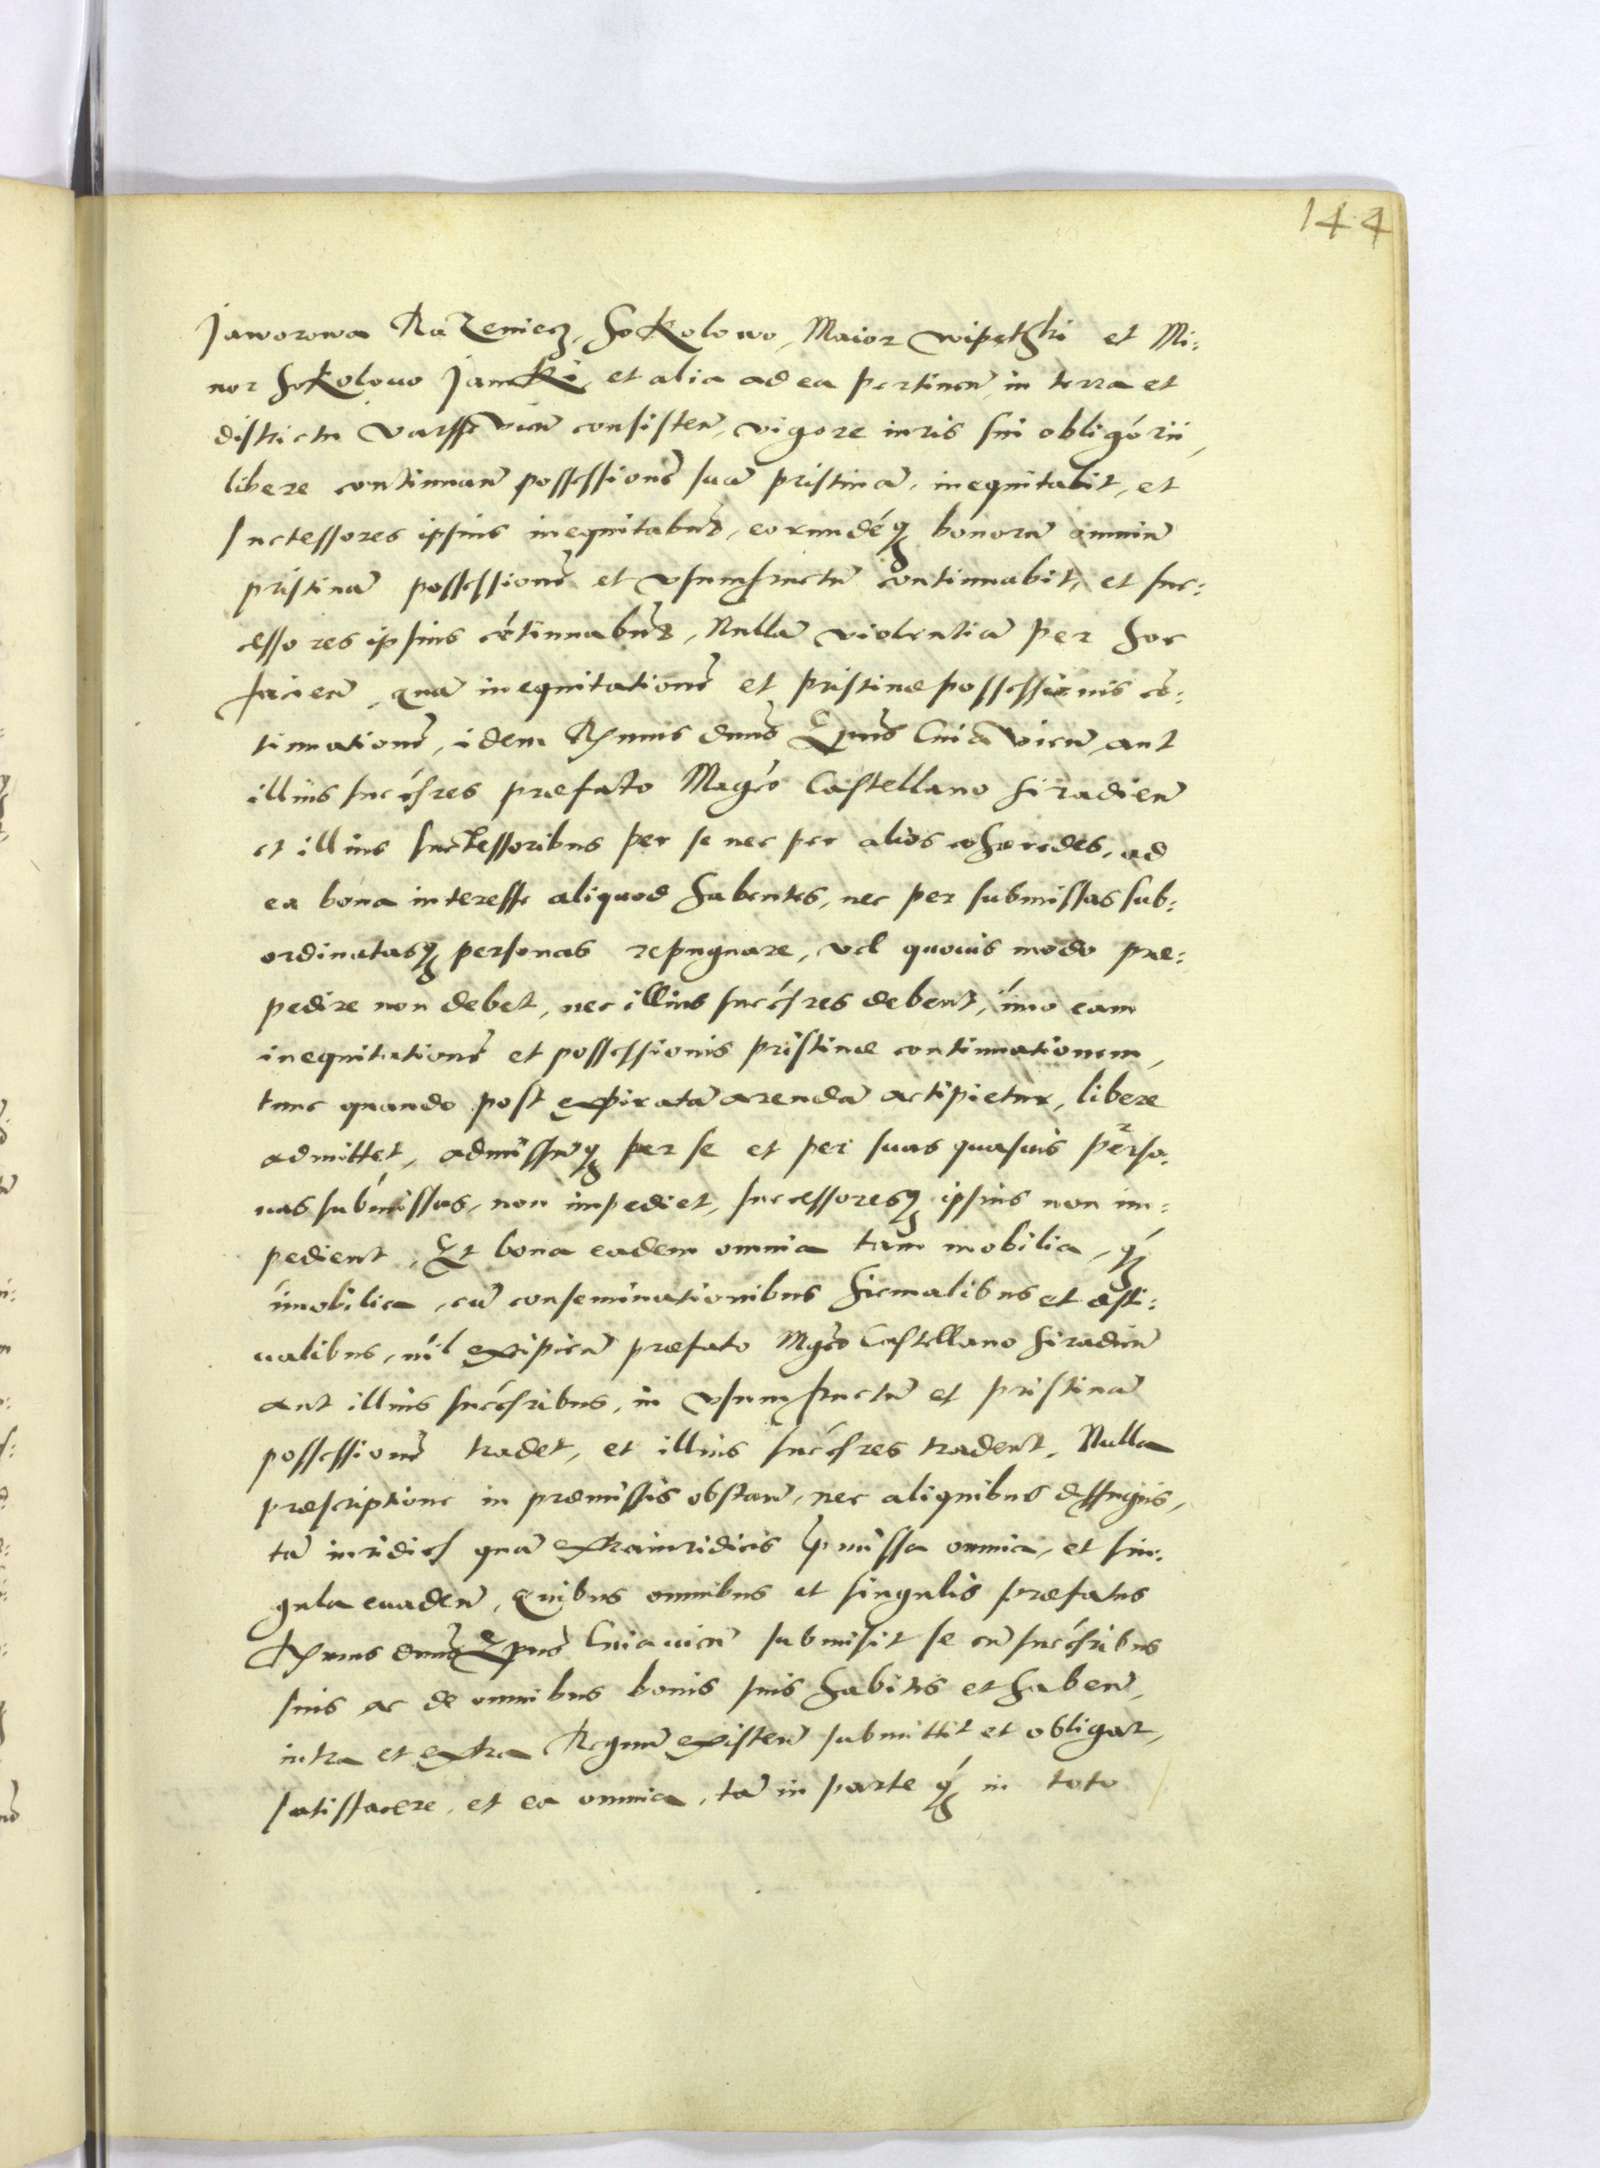 144
Jaworowa Razeniecz, Sokolowo, Maior wipetzki et Mi:
nor Sokolowo Jamki, et alia ad ea pertinen̄ in terra et
districtu Varssovien̄ consisten̄, vigore iuris sui obligorii,
libere continuan̄ possessionē suā pristinā, inequitabit, et
successores ipsius inequitabūt, eorundēq bonorū omniū
pristinam̄ possessionē et vsumfructū continuabit, et suc:
cessores ipsius cōtinuabūt, Nullā violentiā per hoc
facien̄, quā inequitationē et pristinae possessionis cō:
tinuationē, idem Rx̄mus dnūs Epūs Cuiavien̄, aut
illius succ̄sres praefato Magco Castellano Siradien̄
et illius successoribus per se nec per alios cohaeredes, ad
ea bona interesse aliquod habentes, nec per submissas sub:
ordinatasq personas repugnare, vel quouis modo prae:
pedire non debet, nec illius succ̄sres debent, im̄o eam
inequitationē et possessionis pristinae continuationem,
tunc quando post expiratā arendā accipietur, libere
admittet, admissūq per se et per suas quasuis perso:
nas submissas, non impediet, successoresq ipsius non im:
pedient, Et bona eadem omnia tam mobilia, q̄
im̄obilia, cū conseminationibus hiemalibus et aesti:
ualibus, nil excipien̄ praefato Mgco Castellano Siradien̄
aut illius succ̄sribus, in vsumfructū et pristinā
possessionē tradet, et illius succ̄sres tradent, Nulla
praescriptione in praemissis obstan̄, nec aliquibus effugiis,
tā iuridicis quā extraiuridicis p̄missa omnia, et sin:
gula euaden̄, Quibus omnibus et singulis praefatus
Rx̄mus dnūs Epūs Cuiauien̄ submisit se cū succ̄sribus
suis ac de omnibus bonis suis habitis et haben̄,
intra et extra Regnū existen̄ submittit et obligat,
satisfacere, et ea omnia, tā in parte q̄ in toto